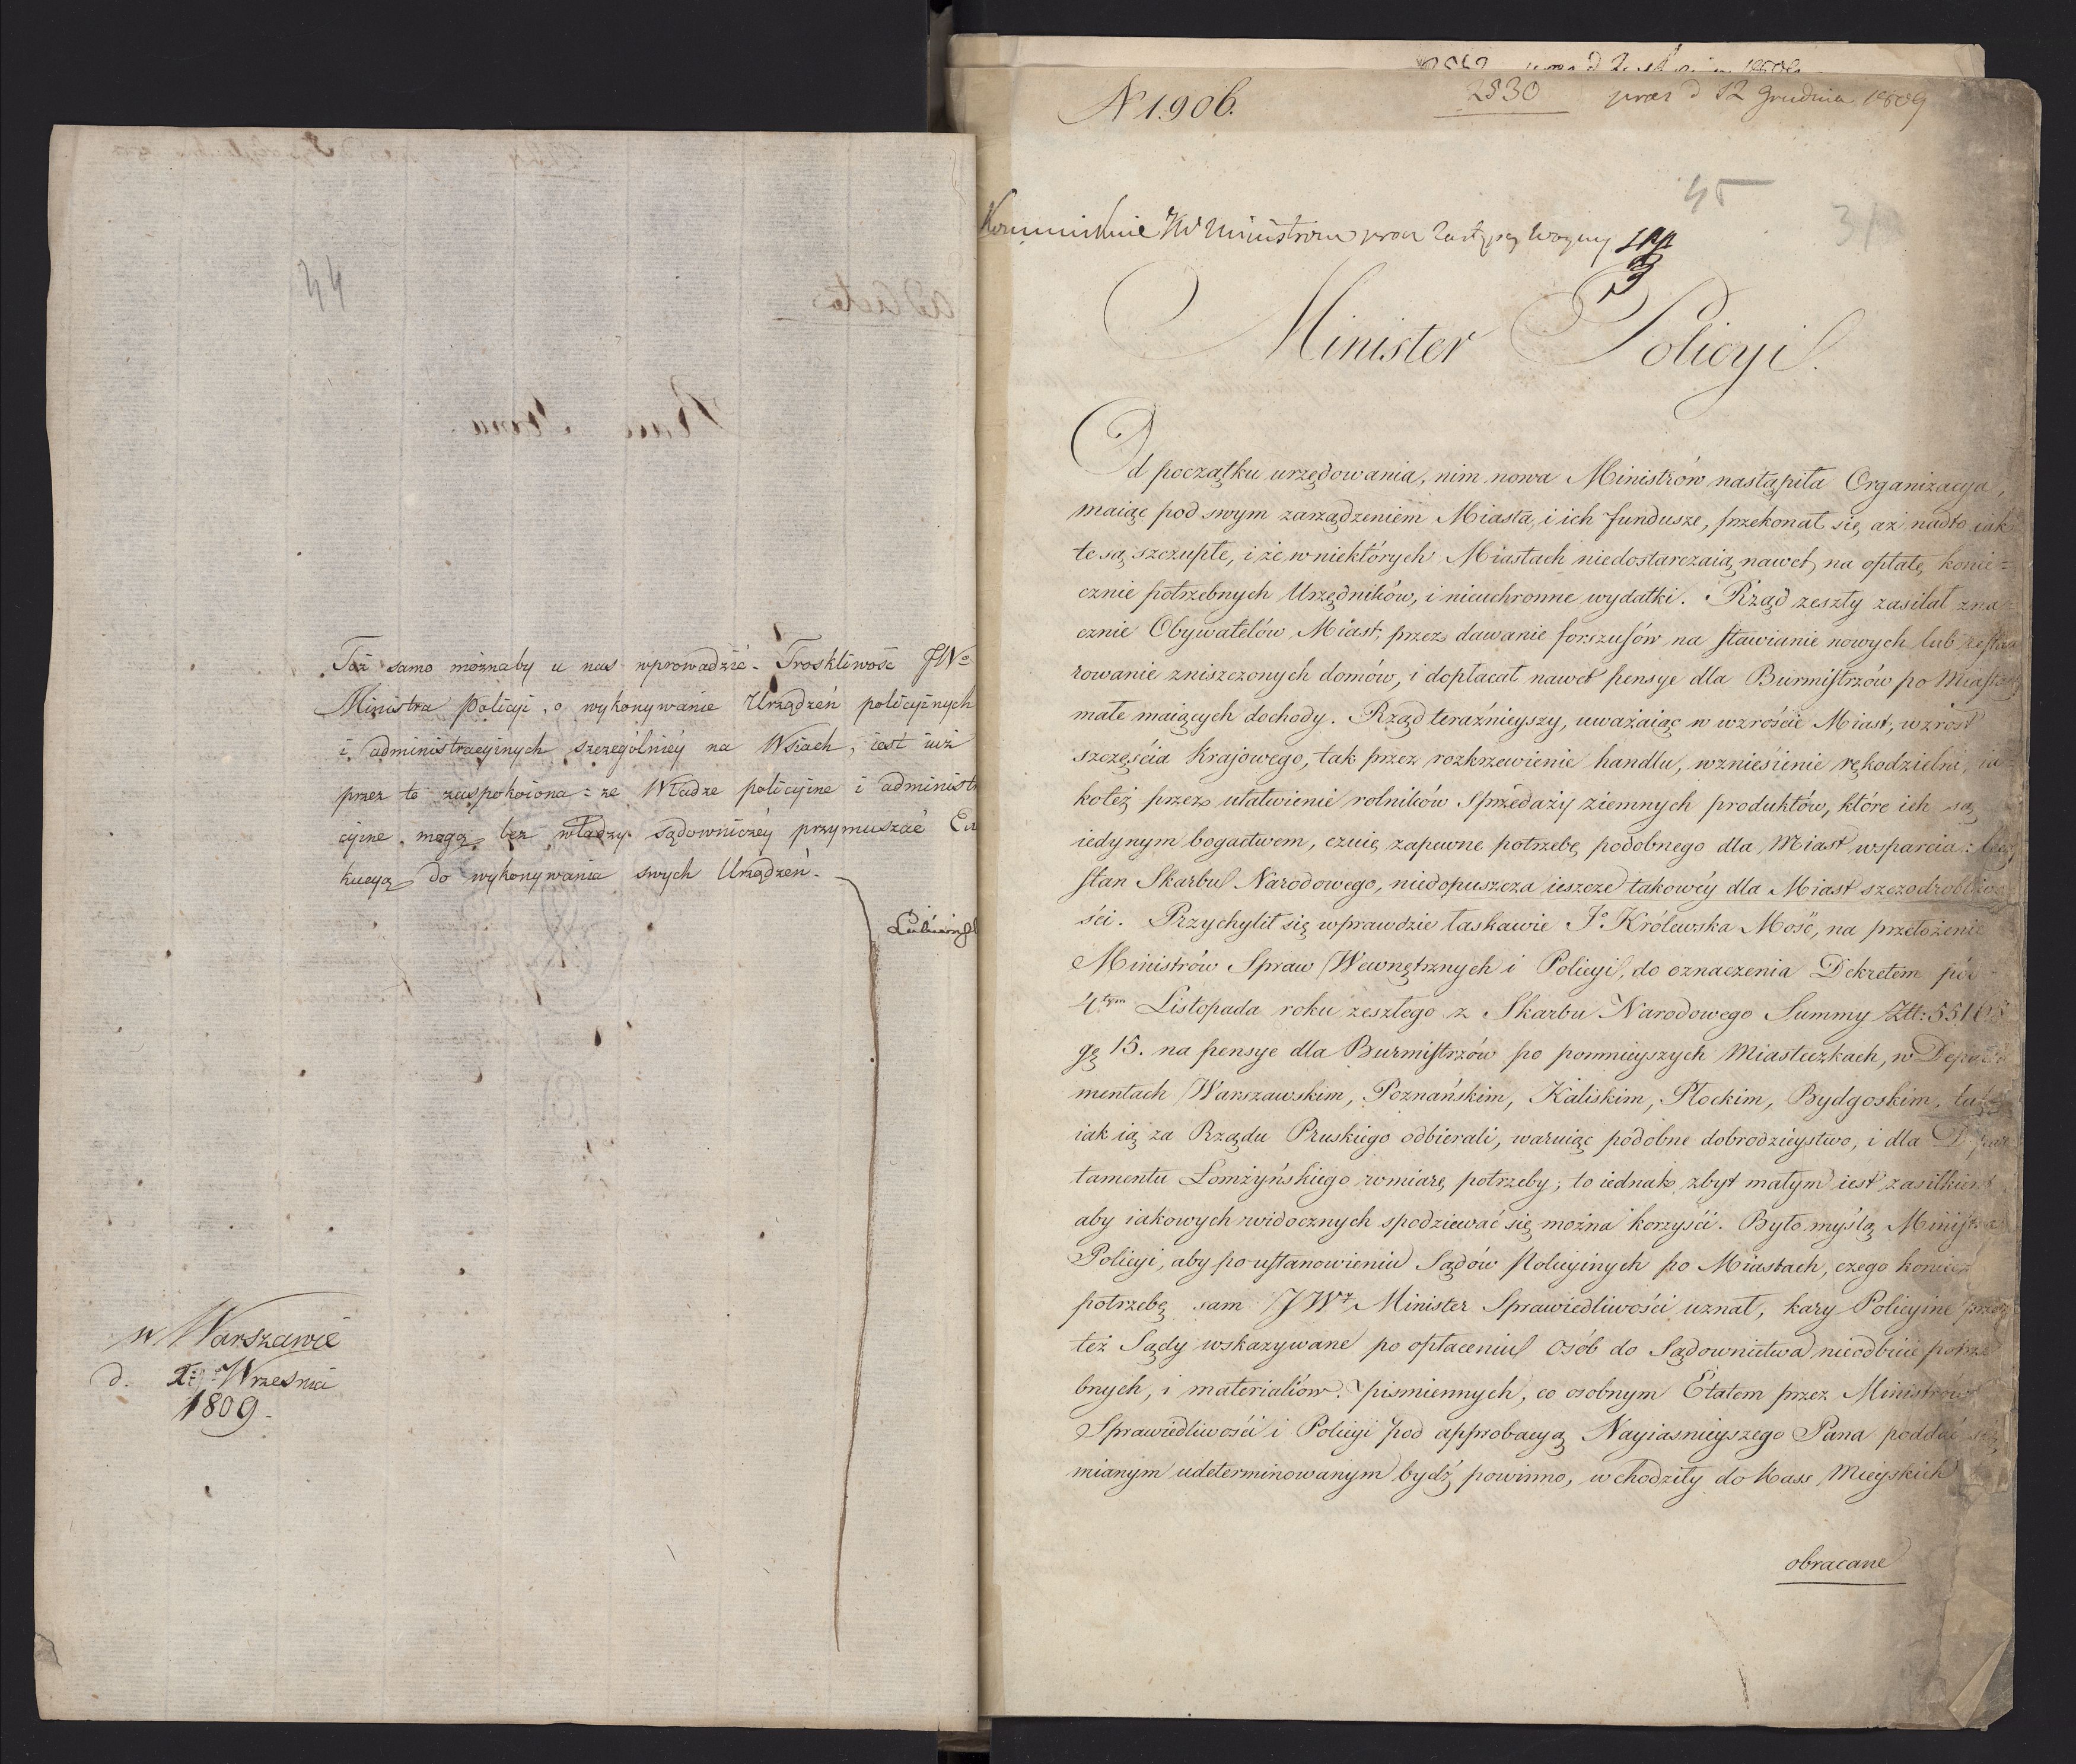 44
Toż samo możnaby u nas wprowadzić. Troskliwość JWo
Ministra Policyi, o wykonywanie Urządzeń policyinych
i administracyinych szczególniéy na Wsiach, iest iuż
przez to zaspokoiona: że Władze policyine i administr
cyine, mogą bez władzy sądowniczéy przymuszać Ex
kucyą do wykonywania swych Urządzeń.
w Warszawie
d. Września
1809.
N 1906.
2830 praes d 12 Grudnia 1809
45
Ministrom przez Zastępcę
Minister Policyi.
Od początku urzędowania, nim nowa Ministrów nastąpiła Organizacya,
maiąc pod swym zarządzeniem Miasta, i ich fundusze, przekonał się, aż nadto iak
te są szczupłe, i że w niektórych Miastach niedostarczaią nawet, na opłatę, konie=
cznie potrzebnych Urzędników, i nieuchronne wydatki. Rząd zeszły zasilał zna=
cznie Obywatelów Miast, przez dawanie forszusów na stawianie nowych lub restau
rowanie zniszczonych domów, i dopłacał nawet pensye dla Burmistrzów po Miastach
małe maiących dochody. Rząd teraźnieyszy, uważaiąc w wzroście Miast, wzrost
szczęścia Krajowego, tak przez rozkrzewienie handlu, wzniesienie rękodzielni, ia=
koteż przez ułatwienie rolników Sprzedaży ziemnych produktów, które ich są
iedynym bogactwem, czuie zapewne potrzebę podobnego dla Miast wsparcia: lecz
stan Skarbu Narodowego, niedopuszcza ieszcze takowéy dla Miast szczodrobliwo
ści. Przychylił się wprawdzie łaskawie Jo Królewska Mość, na przełożenie
Ministrów Spraw Wewnętrznych i Policyi, do oznaczenia Dekretem pod
4tym Listopada roku zeszłego z Skarbu Narodowego Summy Złt: 5516
gę 15. na pensye dla Burmistrzów po pomnieyszych Miasteczkach, w Depar
mentach Warszawskim, Poznańskim, Kaliskim, Płockim, Bydgoskim,
iak ią za Rządu Pruskiego odbierali, waruiąc podobne dobrodzieystwo, i dla Depar
tamentu Łomżyńskiego w miarę potrzeby; to iednak zbyt małym iest zasiłkiem,
aby iakowych widocznych spodziewać się można korzyści. Było myślą Ministra
Policyi, aby po ustanowieniu Sądów Policyinych po Miastach, czego konieczną
potrzebę sam JWy Minister Sprawiedliwości uznał, kary Policyine przez
też Sądy wskazywane po opłaceniu osób do Sądownictwa nieodbicie potrze
bnych, i materiałów piśmiennych, co osobnym Etatem przez Ministrów
Sprawiedliwości i Policyi pod approbacyą Nayiaśnieyszego Pana poddać się
mianym udeterminowanym bydź powinno, wchodziły do Kass Mieyskich
obracane